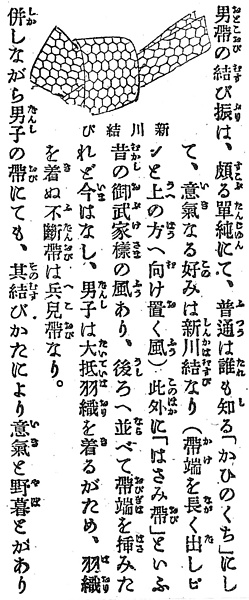 男帶の結び振は、頗る單純にて、普通は誰も知る「かひのくち」にし
新川結び
て、意氣なる好みは新川結なり（帶端を長く出しピ
ンと上の方へ向け置く風）此外に「はさみ帶」といふ
昔の御武家樣の風あり、後ろへ並べて帶端を挿みた
れど今はなし、男子は大抵羽織を着るがため、羽織
を着ぬ不斷帶は兵兒帶なり。
併しながら男子の帶にても、其結びかたにより意氣と野暮とがあり